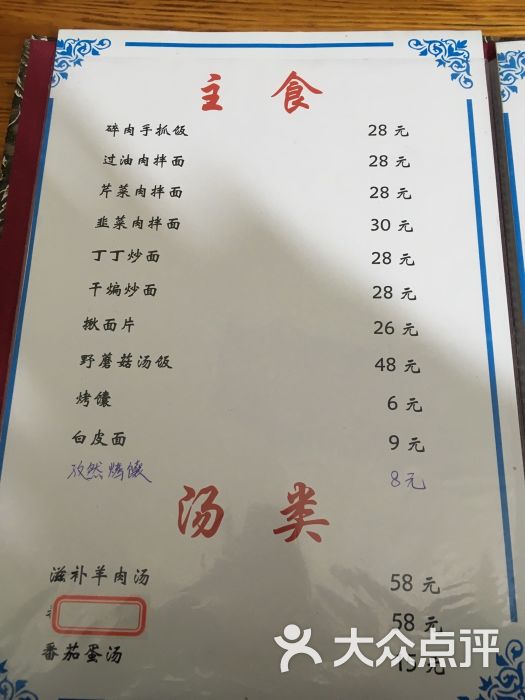 主食
碎肉手抓饭 28 元
过油肉拌面 28 元
芹菜肉拌面 28 元
韭菜肉拌面 30 元
丁丁炒面 28 元
干煸炒面 28 元
揪面片 26 元
野蘑菇汤饭 48 元
烤馕 6 元
白皮面 9 元
孜然烤馕 8元
汤类
滋补羊肉汤 58 元
58 元
番茄蛋汤 45 元
大众点评